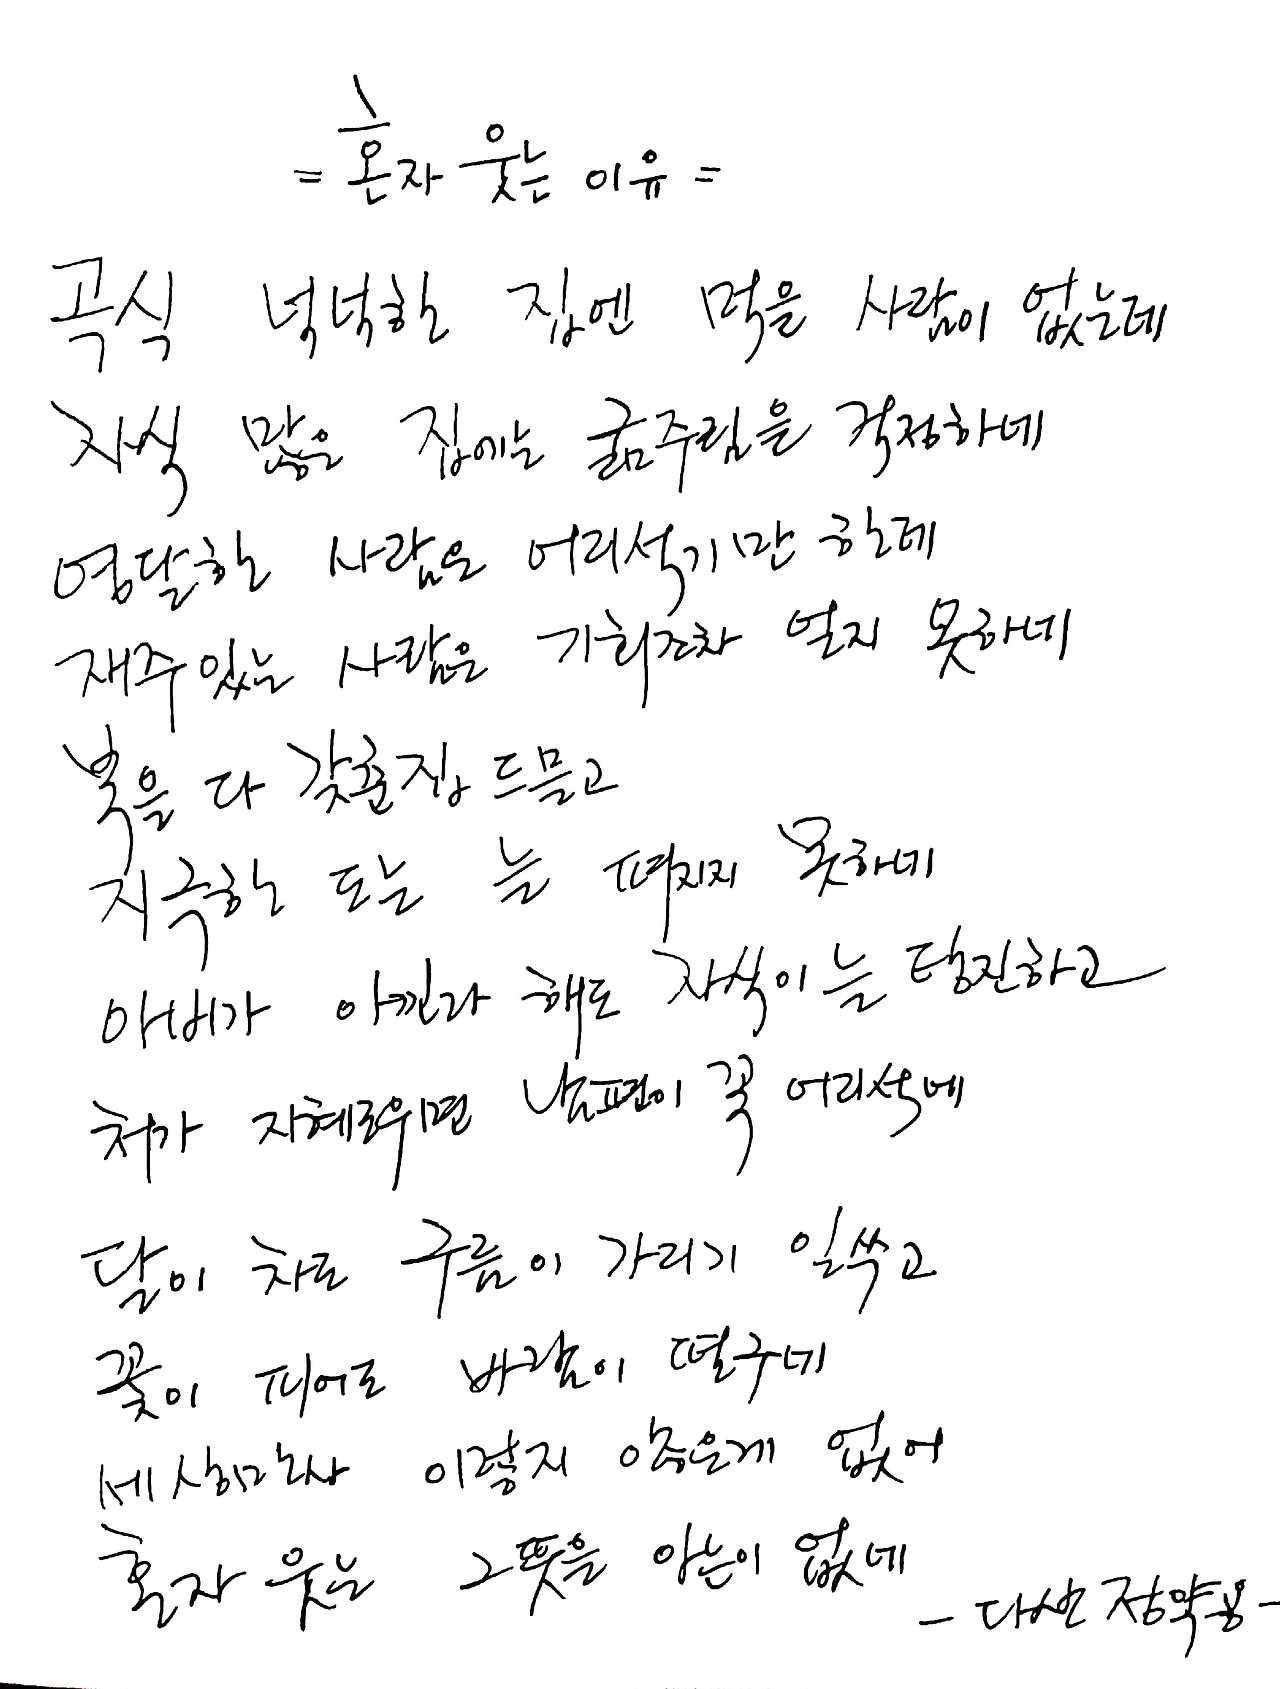 = 혼자 웃는 이유 =
곡식 넉넉한 집엔 먹을 사람이 없는데
자식 많은 집에는 굶주림을 걱정하네
영달한 사람은 어리석기만 한데
재주있는 사람은 기회조차 얻지 못하네
복을 다 갖춘집 드믈고
지극한 도는 늘 펴지지 못하네
아비가 아낀다 해도 자식이 늘 탕진하고
처가 지혜로우면 남편이 꼭 어리석네
달이 차도 구름이 가리기 일쑤고
꽃이 피어도 바람이 떨구네
세상만사 이렇지 않은게 없어
혼자 웃는 그뜻을 아는이 없네
- 다산 정약용 -